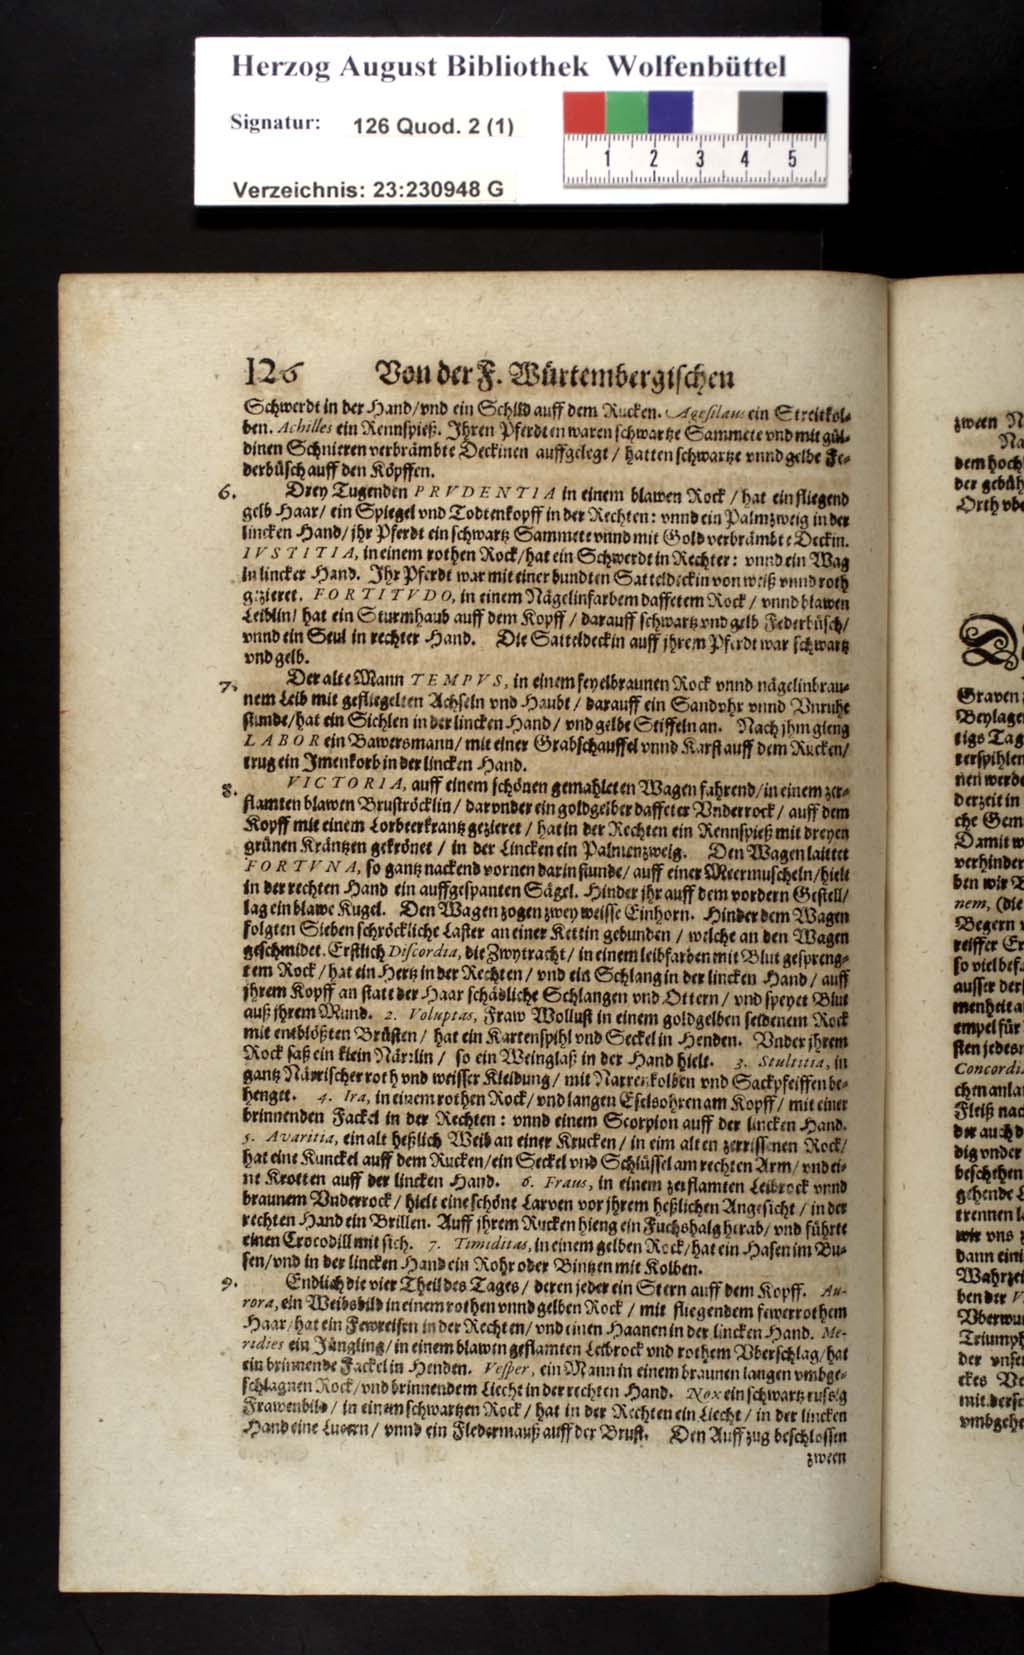 Herzog August Bibliothek Wolfenbüttel
Signatur: 126 Quod. 2 (1)
1 2 3 4 5
Verzeichnis: 23:230948 G
126 Von der F. Würtembergischen
Schwerdt in der Hand/vnd ein Schild auff dem Rucken. Agesilaus ein Streitkol-
ben. Achilles ein Rennspieß. Ihren Pferdten waren schwartze Sammete vnd mit gül-
dinen Schnieren verbrämbte Deckinen auffgelegt/ hatten schwartze vnnd gelbe Fe-
derbüsch auff den Köpffen.
6. Drey Tugenden PRVDENTIA in einem blawen Rock/ hat ein fliegend
gelb Haar/ ein Spiegel vnd Todtenkopff in der Rechten: vnnd ein Palmzweig in der
lincken Hand/ jhr Pferdt ein schwartz Sammete vnnd mit Gold verbrämbte Deckin.
IVSTITIA, in einem rothen Rock/hat ein Schwerdt in Rechter: vnnd ein Wag
in lincker Hand. Ihr Pferdt war mit einer bundten Satteldeckin von weiß vnnd roth
gezieret. FORTITVDO, in einem Nägelinfarbem daffetem Rock/ vnnd blawen
Leiblin/ hat ein Sturmhaub auff dem Kopff/ darauff schwartz vnd gelb Federbüsch/
vnnd ein Seul in rechter Hand. Die Satteldeckin auff jhrem Pferdt war schwartz
vnd gelb.
7. Der alte Mann TEMPVS, in einem feyelbraunen Rock vnnd nägelinbrau-
nem Leib mit gefliegelten Achseln vnd Haubt/ darauff ein Sandvhr vnnd Vnruhe
stunde/hat ein Sichlen in der lincken Hand/ vnd gelbe Stiffeln an. Nach jhm gieng
LABOR ein Bawersmann/ mit einer Grabschauffel vnnd Karst auff dem Rucken/
trug ein Imenkorb in der lincken Hand.
8. VICTORIA, auff einem schönen gemahleten Wagen fahrend/in einem zer-
flamten blawen Bruströcklin/ darvnder ein goldgelber daffeter Vnderrock/ auff dem
Kopff mit einem Lorbeerkrantz gezieret/ hat in der Rechten ein Rennspieß mit dreyen
grünen Kräntzen gekrönet/ in der Lincken ein Palmenzweig. Den Wagen laittet
FORTVNA, so gantz nackend vornen darin stunde/ auff einer Meermuscheln/hielt
in der rechten Hand ein auffgespanten Sägel. Hinder jhr auff dem vordern Gestell/
lag ein blawe Kugel. Den Wagen zogen zwey weisse Einhorn. Hinder dem Wagen
folgten Sieben schröckliche Laster an einer Kettin gebunden/ welche an den Wagen
geschmidet. Erstlich Discordia, die Zwytracht/ in einem leibfarben mit Blut gespreng-
tem Rock/ hat ein Hertz in der Rechten/ vnd ein Schlang in der lincken Hand/ auff
jhrem Kopff an statt der Haar schädliche Schlangen vnd Ottern/ vnd speyet Blut
auß jhrem Mund. 2. Voluptas, Fraw Wollust in einem goldgelben seidenem Rock
mit entblößten Brüsten/ hat ein Kartenspihl vnd Seckel in Henden. Vnder jhrem
Rock saß ein klein Närrlin/ so ein Weinglaß in der Hand hielt. 3. Stultitia, in
gantz Närrischer roth vnd weisser Kleidung/ mit Narrenkolben vnd Sackpfeiffen be-
henget. 4. Ira, in einem rothen Rock/ vnd langen Eselsohren am Kopff/ mit einer
brinnenden Fackel in der Rechten: vnnd einem Scorpion auff der lincken Hand.
5. Avaritia, ein alt heßlich Weib an einer Krucken/ in eim alten zerrissenen Rock/
hat eine Kunckel auff dem Rucken/ein Seckel vnd Schlüssel am rechten Arm/ vnd ei-
ne Krotten auff der lincken Hand. 6. Fraus, in einem zerflamten Leibrock vnnd
braunem Vnderrock/ hielt eine schöne Larven vor jhrem heßlichen Angesicht/ in der
rechten Hand ein Brillen. Auff jhrem Rucken hieng ein Fuchshalg herab/ vnd führte
einen Crocodill mit sich. 7. Timiditas, in einem gelben Rock/ hat ein Hasen im Bu-
sen/vnd in der lincken Hand ein Rohr oder Bintzen mit Kolben.
9. Endlich die vier Theil des Tages/ deren jeder ein Stern auff dem Kopff. Au-
rora, ein Weibsbild in einem rothen vnnd gelben Rock/ mit fliegendem fewerrothem
Haar/ hat ein Fewreisen in der Rechten/ vnd einen Haanen in der lincken Hand. Me-
ridies ein Jüngling/ in einem blawen geflamten Leibrock vnd rothem Vberschlag/ hat
ein brinnende Fackel in Henden. Vesper, ein Mann in einem braunen langen vmbge-
schlagnen Rock/vnd brinnendem Liecht in der rechten Hand. Nox ein schwartz russig
Frawenbild/ in einem schwartzen Rock/ hat in der Rechten ein Liecht/ in der lincken
Hand eine Lucern/ vnnd ein Fledermauß auff der Brust. Den Auffzug beschlossen
zween
zween
dem hoch
der gebüh
Orth vbe
D
Graven
Beylage
tigs Tag
terspihlen
nen werde
derzeit in
che Gem
Damit w
verhinder
ben wir
nem, (die
Begern
reiffer Er
so viel bef
ausser der
menheit a
empel für
sten jedes
Concordia
chen anla
Fleiß nac
der auch d
dig vnder
beschehen
gehende
trennen
wir vns
dann eini
Wahrzei
ben der
Vberwu
Triumph
der vnse
ckes Ve
mit derse
vmbgehe